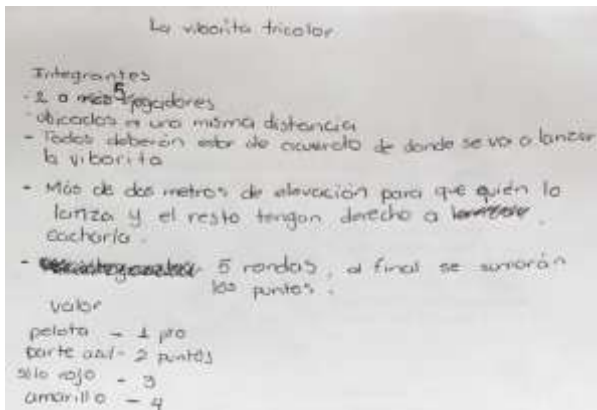 La viborita tricolor
Integrantes
- 2 a 5 jugadores
- ubicados a una misma distancia
- Todos deberán estar de acuerdo de donde se va a lanzar
la viborita
- Más de dos metros de elevación para que quién lo
lanza y el resto tengan derecho a
cacharla.
- 5 rondas, al final se sumarán
los puntos.
valor
pelota - 1 pto
parte azul - 2 puntos
sólo rojo - 3
amarillo - 4